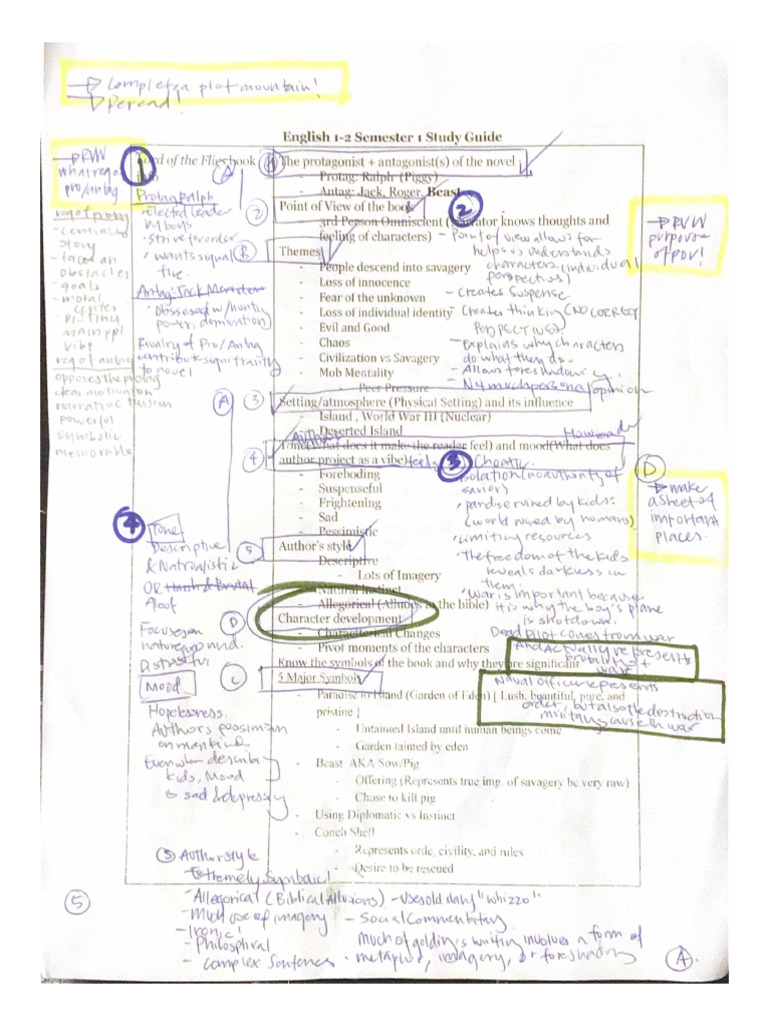 → Complete a plot mountain!
→ Reread!
English 1-2 Semester 1 Study Guide
→ RVW
what req of
pro/antag.
req of protag
- centrality
story
- faces an
obstacles
- goals
- moral
center
- Distinct
main ppl
vibe
req of antag
opposes the protag
clear motivation
narrative tension
powerful
symbolic
memorable
1
Lord of the Flies book
info
A
Protag: Ralph
- Elected leader
by boys
- strive for order
- wants signal
fire.
Antag: Jack Merridew
- Obsessed w/ hunting
power, domination
Rivalry of Pro/Antag
contribute significantly
to novel
A
4
Tone
Descriptive
& Naturalistic
OR Harsh & Brutal
Aloof
Focuses on
nature around.
Distasteful
Mood
Hopelessness.
Authors pessimism
on mankind
Even when describing
kids, mood
is sad & depressing
1
The protagonist + antagonist(s) of the novel
- Protag: Ralph (Piggy)
- Antag: Jack, Roger, Beast
2
Point of View of the book
2
- 3rd Person Omniscient (Narrator knows thoughts and
feeling of characters)
B
Themes
- People descend into savagery
- Loss of innocence
- Fear of the unknown
- Loss of individual identity
- Evil and Good
- Chaos
- Civilization vs Savagery
- Mob Mentality
- Peer Pressure
- Point of view allows for
helps us understands
characters (individual
perspectives)
- Creates suspense.
Creates thinking (NO CORRECT
PERSPECTIVE).
- Explains why characters
do what they do.
- Allows foreshadowing.
- Not much personal opinion
→ RVW
purpose
of pov!
3
Setting/atmosphere (Physical Setting) and its influence
- Island , World War III (Nuclear)
- Deserted Island
Author
How reader
4
Tone(what does it make the reader feel) and mood(What does
author project as a vibe)
feels
- Foreboding
- Suspenseful
- Frightening
- Sad
- Pessimistic
3
Chaotic.
isolation (no authority of
savior)
- paradise ruined by kids:
(world ruined by humans)
- Limiting resources
- The freedom of the kids
reveals darkness in
them.
- War is important because
it is why the boy's plane
is shot down.
Dead pilot comes from war
And actually represents
brutality of
war
Naval officer represents
order, but also the destruction
military cause in war
D
→ make
a sheet of
important
places.
5
Author's style
- Descriptive
- Lots of Imagery
- Natural Instinct
- Allegorical (Alludes to the bible)
D
Character development
- Characterical Changes
- Pivot moments of the characters
Know the symbols of the book and why they are significant
C
5 Major Symbols
- Paradise in Island (Garden of Eden) [ Lush, beautiful, pure, and
pristine ]
- Untained Island until human beings come
- Garden tainted by eden
- Beast AKA Sow/Pig
- Offering (Represents true img. of savagery be very raw)
- Chose to kill pig
- Using Diplomatic vs Instinct
- Conch Shell
- Represents orde, civility, and rules
- Desire to be rescued
5 Author style
- Extremely symbolic!
- Allegorical (Biblical Allusions)
- Uses old slang "whizzo"
- Much use of imagery
- Social Commentary
- Ironic!
- Philosphical
- complex sentences
Much of golding's writing involves a form of
metaphor, imagery, or foreshadowing
5
A